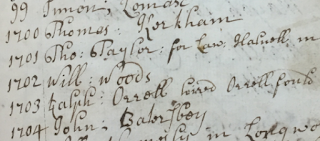 99 Simon: Lomax
1700 Thomas: Kerkham
1701 Tho: Taylor: for Law: Halwell in
1702 Will: Woods
1703 Ralph: Orrell hired Orrell fould
1704 John:
in Longwo